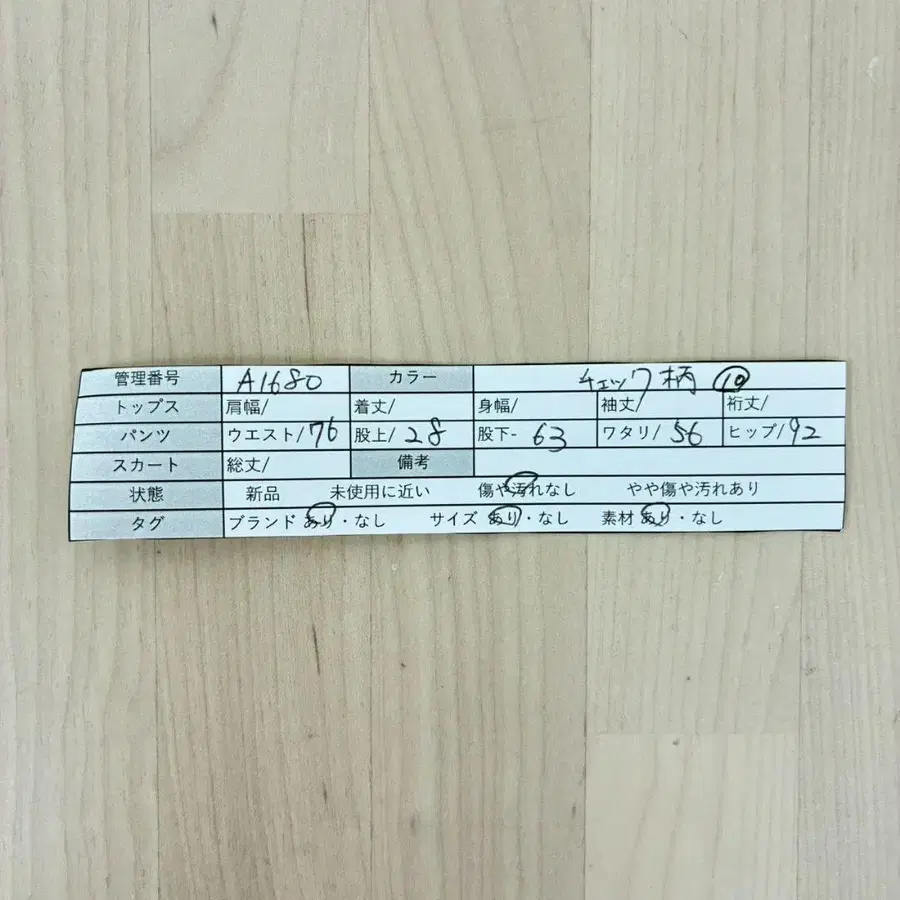 管理番号 A1680 カラー チェック柄 ⑩
トップス 肩幅/ 着丈/ 身幅/ 袖丈/ 裄丈/
パンツ ウエスト/76 股上/28 股下- 63 ワタリ/56 ヒップ/92
スカート 総丈/ 備考
状態 新品 未使用に近い 傷や汚れなし やや傷や汚れあり
タグ ブランド あり・なし サイズ あり・なし 素材 あり・なし